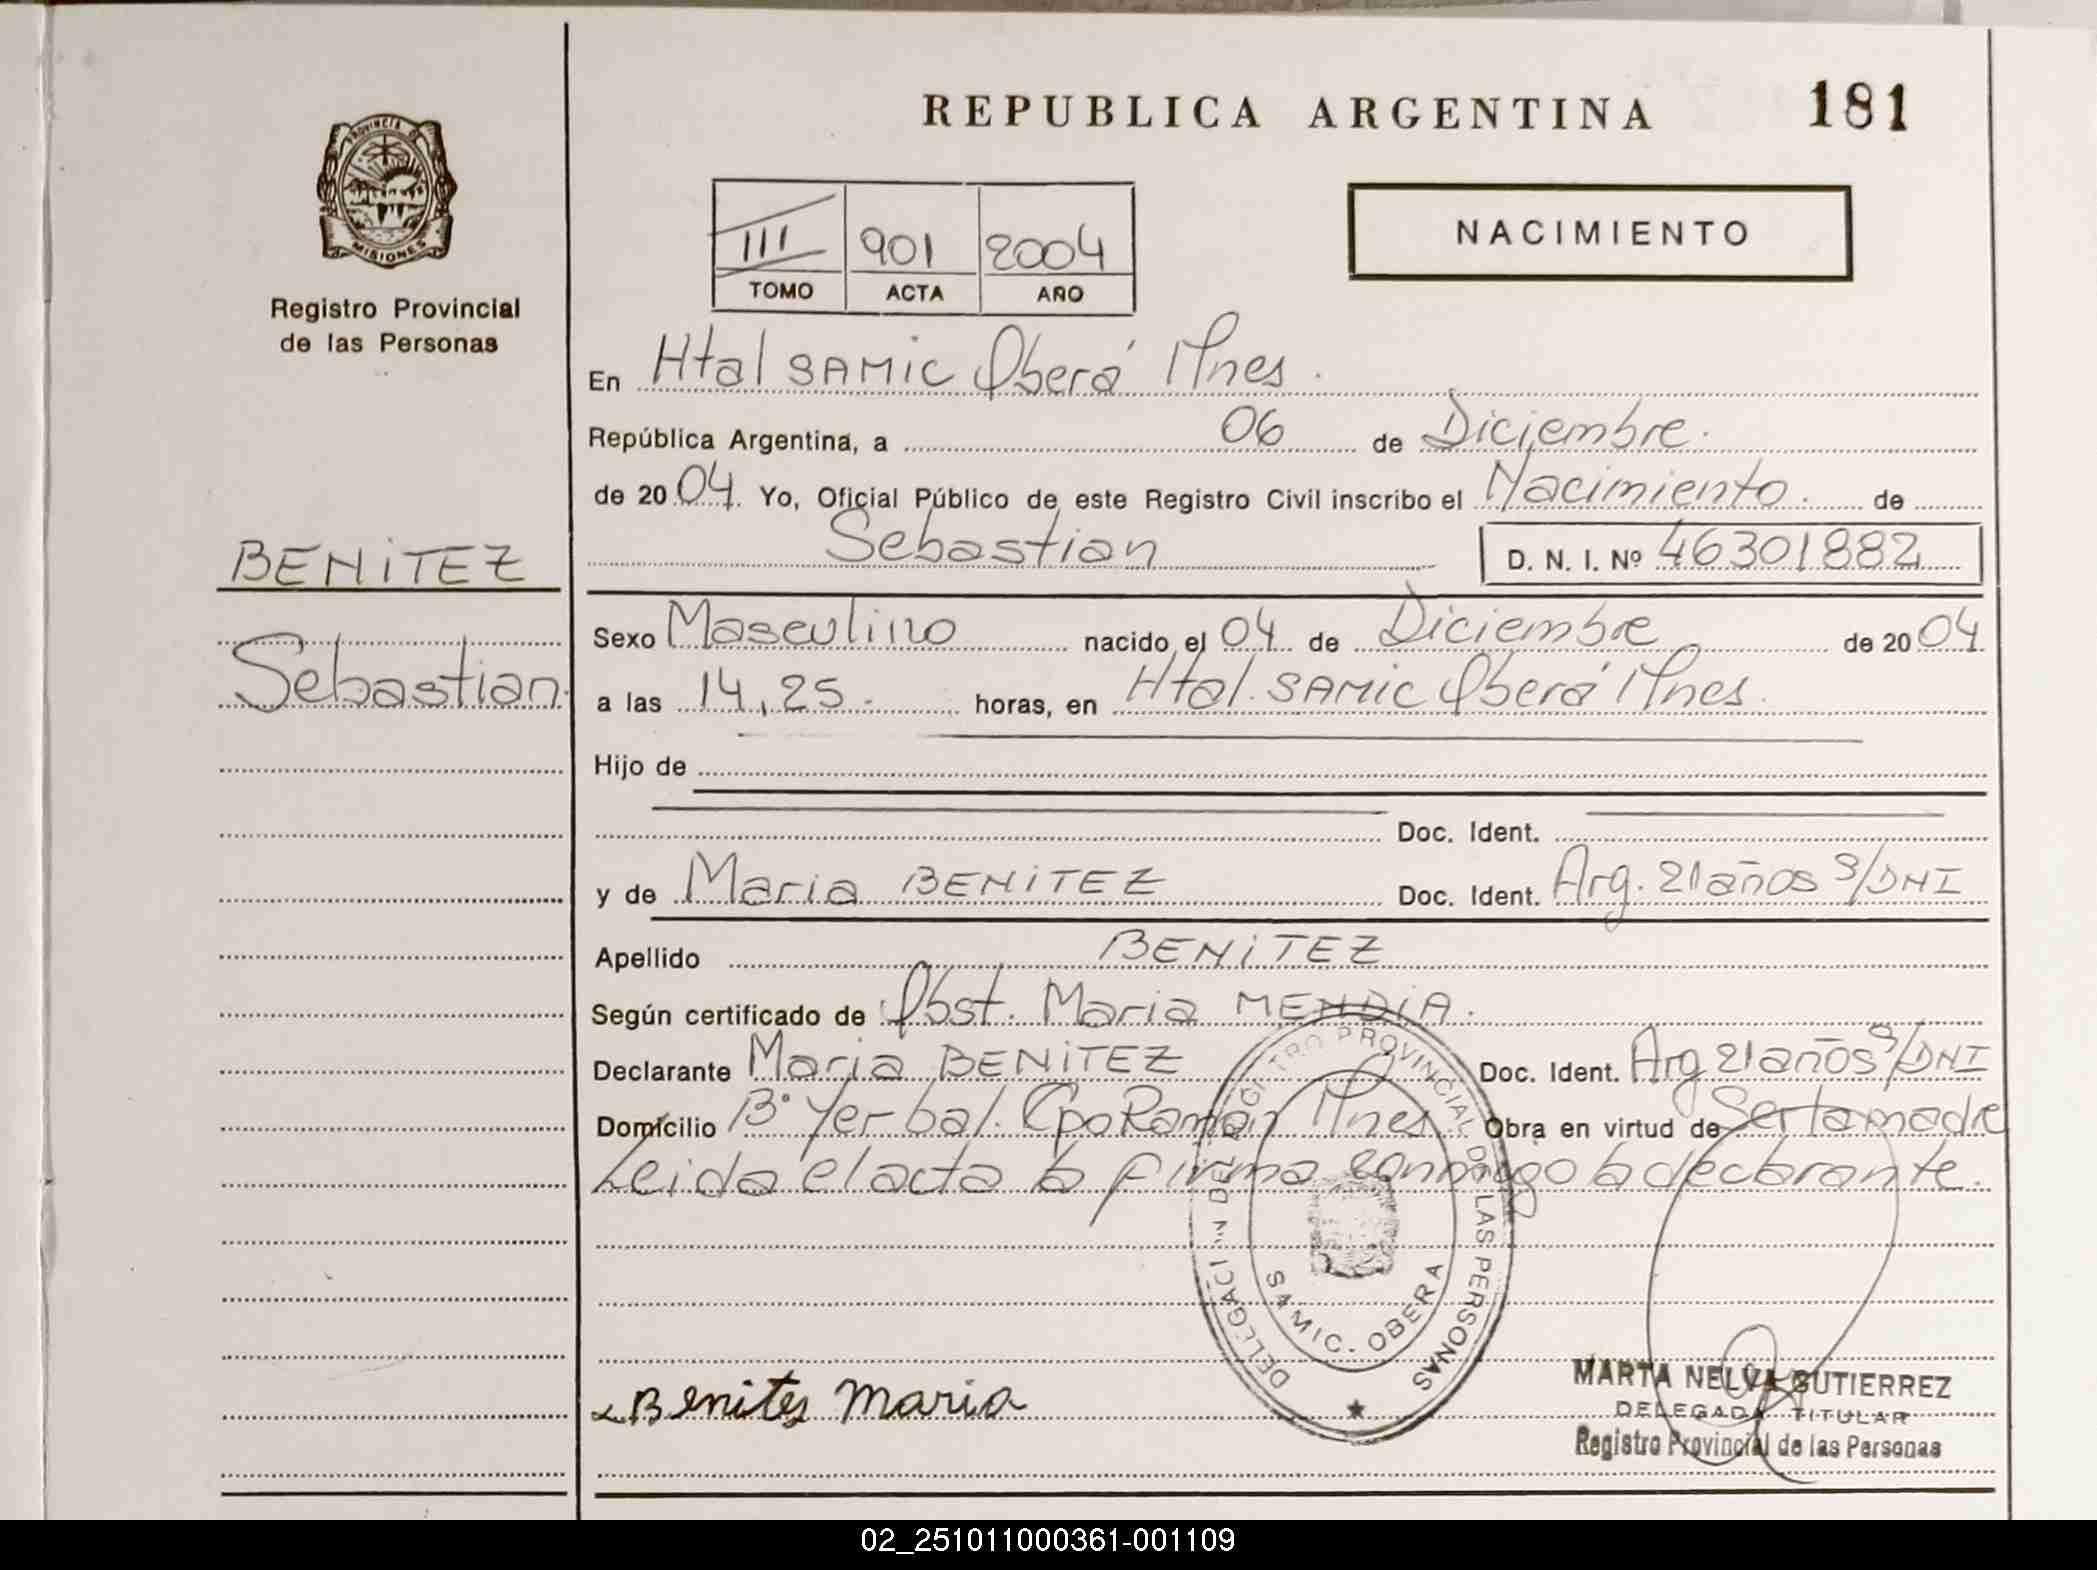 REPUBLICA ARGENTINA 181
PROVINCIA DE
MISIONES
Registro Provincial
de las Personas
III 901 2004
TOMO ACTA AÑO
NACIMIENTO
En Htal SAMIC Oberá Mnes.
República Argentina, a 06 de Diciembre.
de 2004. Yo, Oficial Público de este Registro Civil inscribo el Nacimiento. de
Sebastian D. N. I. Nº 46301882
BENITEZ
Sebastian.
Sexo Masculino nacido el 04 de Diciembre de 2004
a las 14,25.- horas, en Htal. SAMIC Oberá Mnes.
Hijo de
Doc. Ident.
y de Maria BENITEZ Doc. Ident. Arg. 21 años S/DNI
Apellido BENITEZ
Según certificado de Obst. Maria MENDIA.
Declarante Maria BENITEZ Doc. Ident. Arg 21 años S/DNI
Domicilio Bº Yerbal. Cpo Ramón Mnes Obra en virtud de Ser la madre
Leida el acta la firma conmigo la declarante.
DELEGACION DEL REGISTRO PROVINCIAL DE LAS PERSONAS
SAMIC. OBERA
Benites Maria
MARTA NELVA GUTIERREZ
DELEGADA TITULAR
Registro Provincial de las Personas
02_251011000361-001109